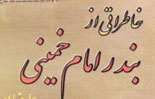 خاطراتی از
بندر امام خمینی